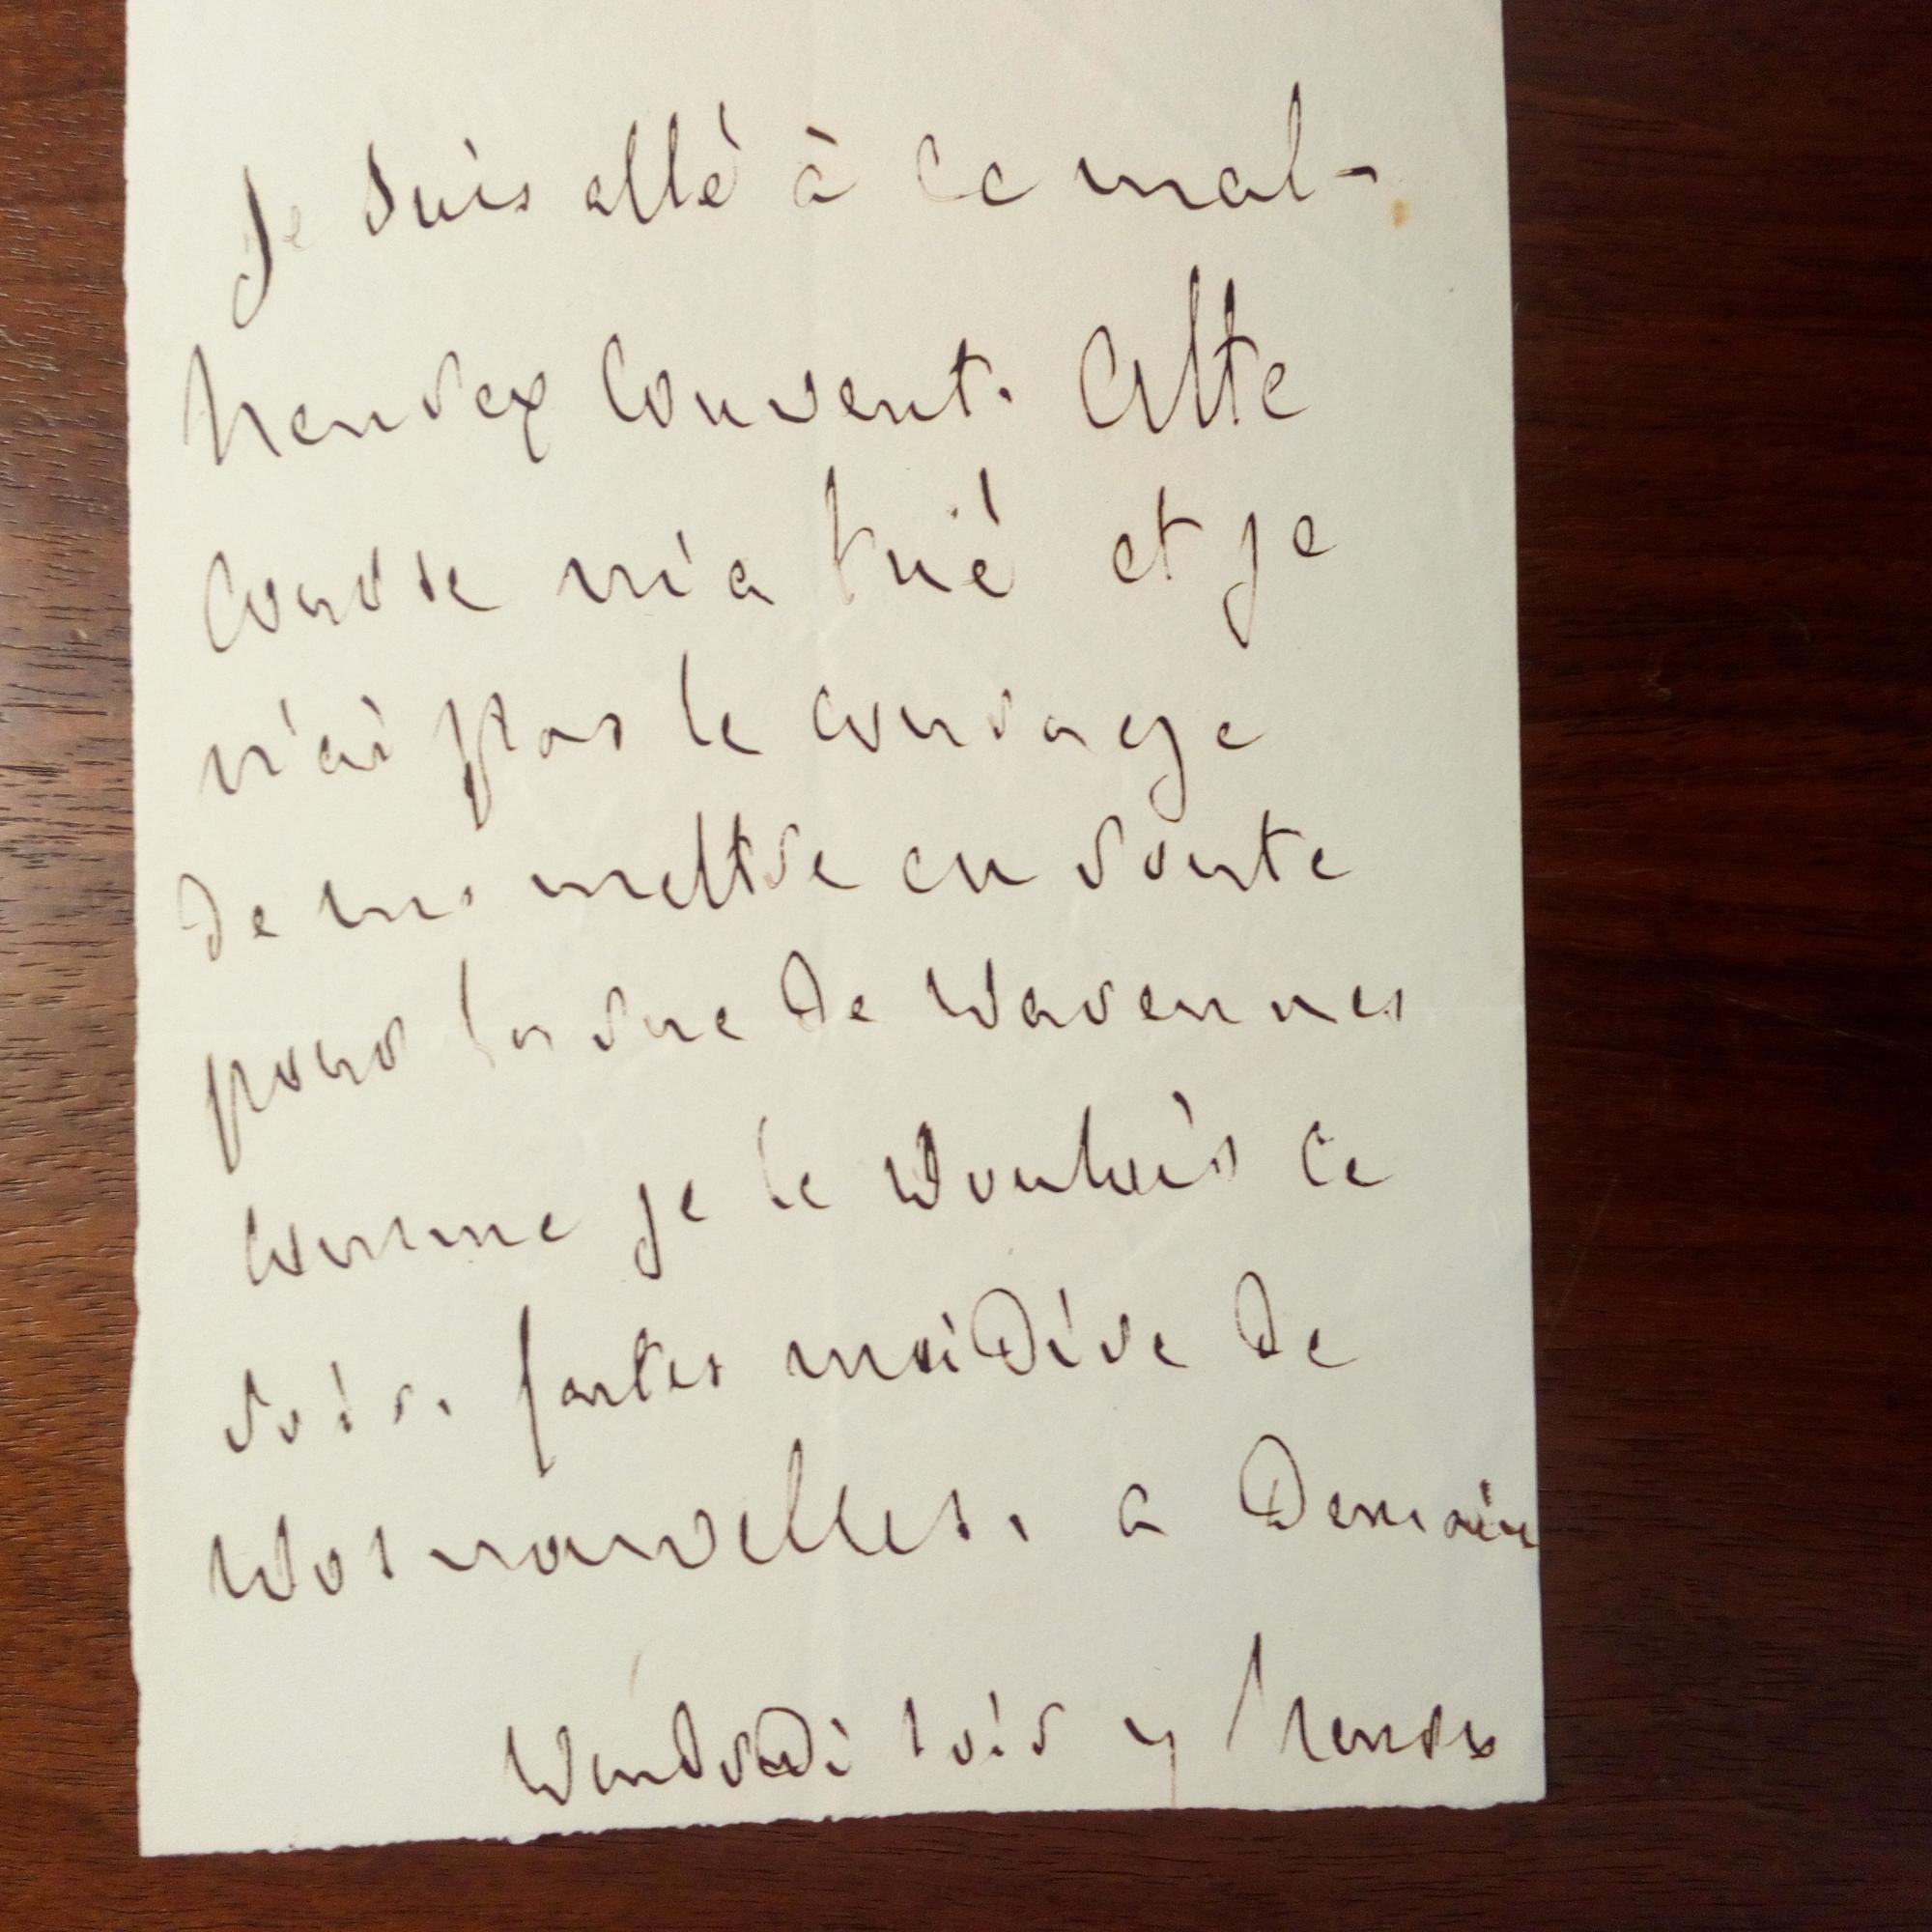 Je suis allé à ce mal-
heureux couvent. Cette
course m'a tué et je
n'ai pas le courage
de me mettre en route
pour la rue de Varennes
comme je le voulais ce
soir. faites moi dire de
vos nouvelles. a demain
Vendredi soir 7 heures